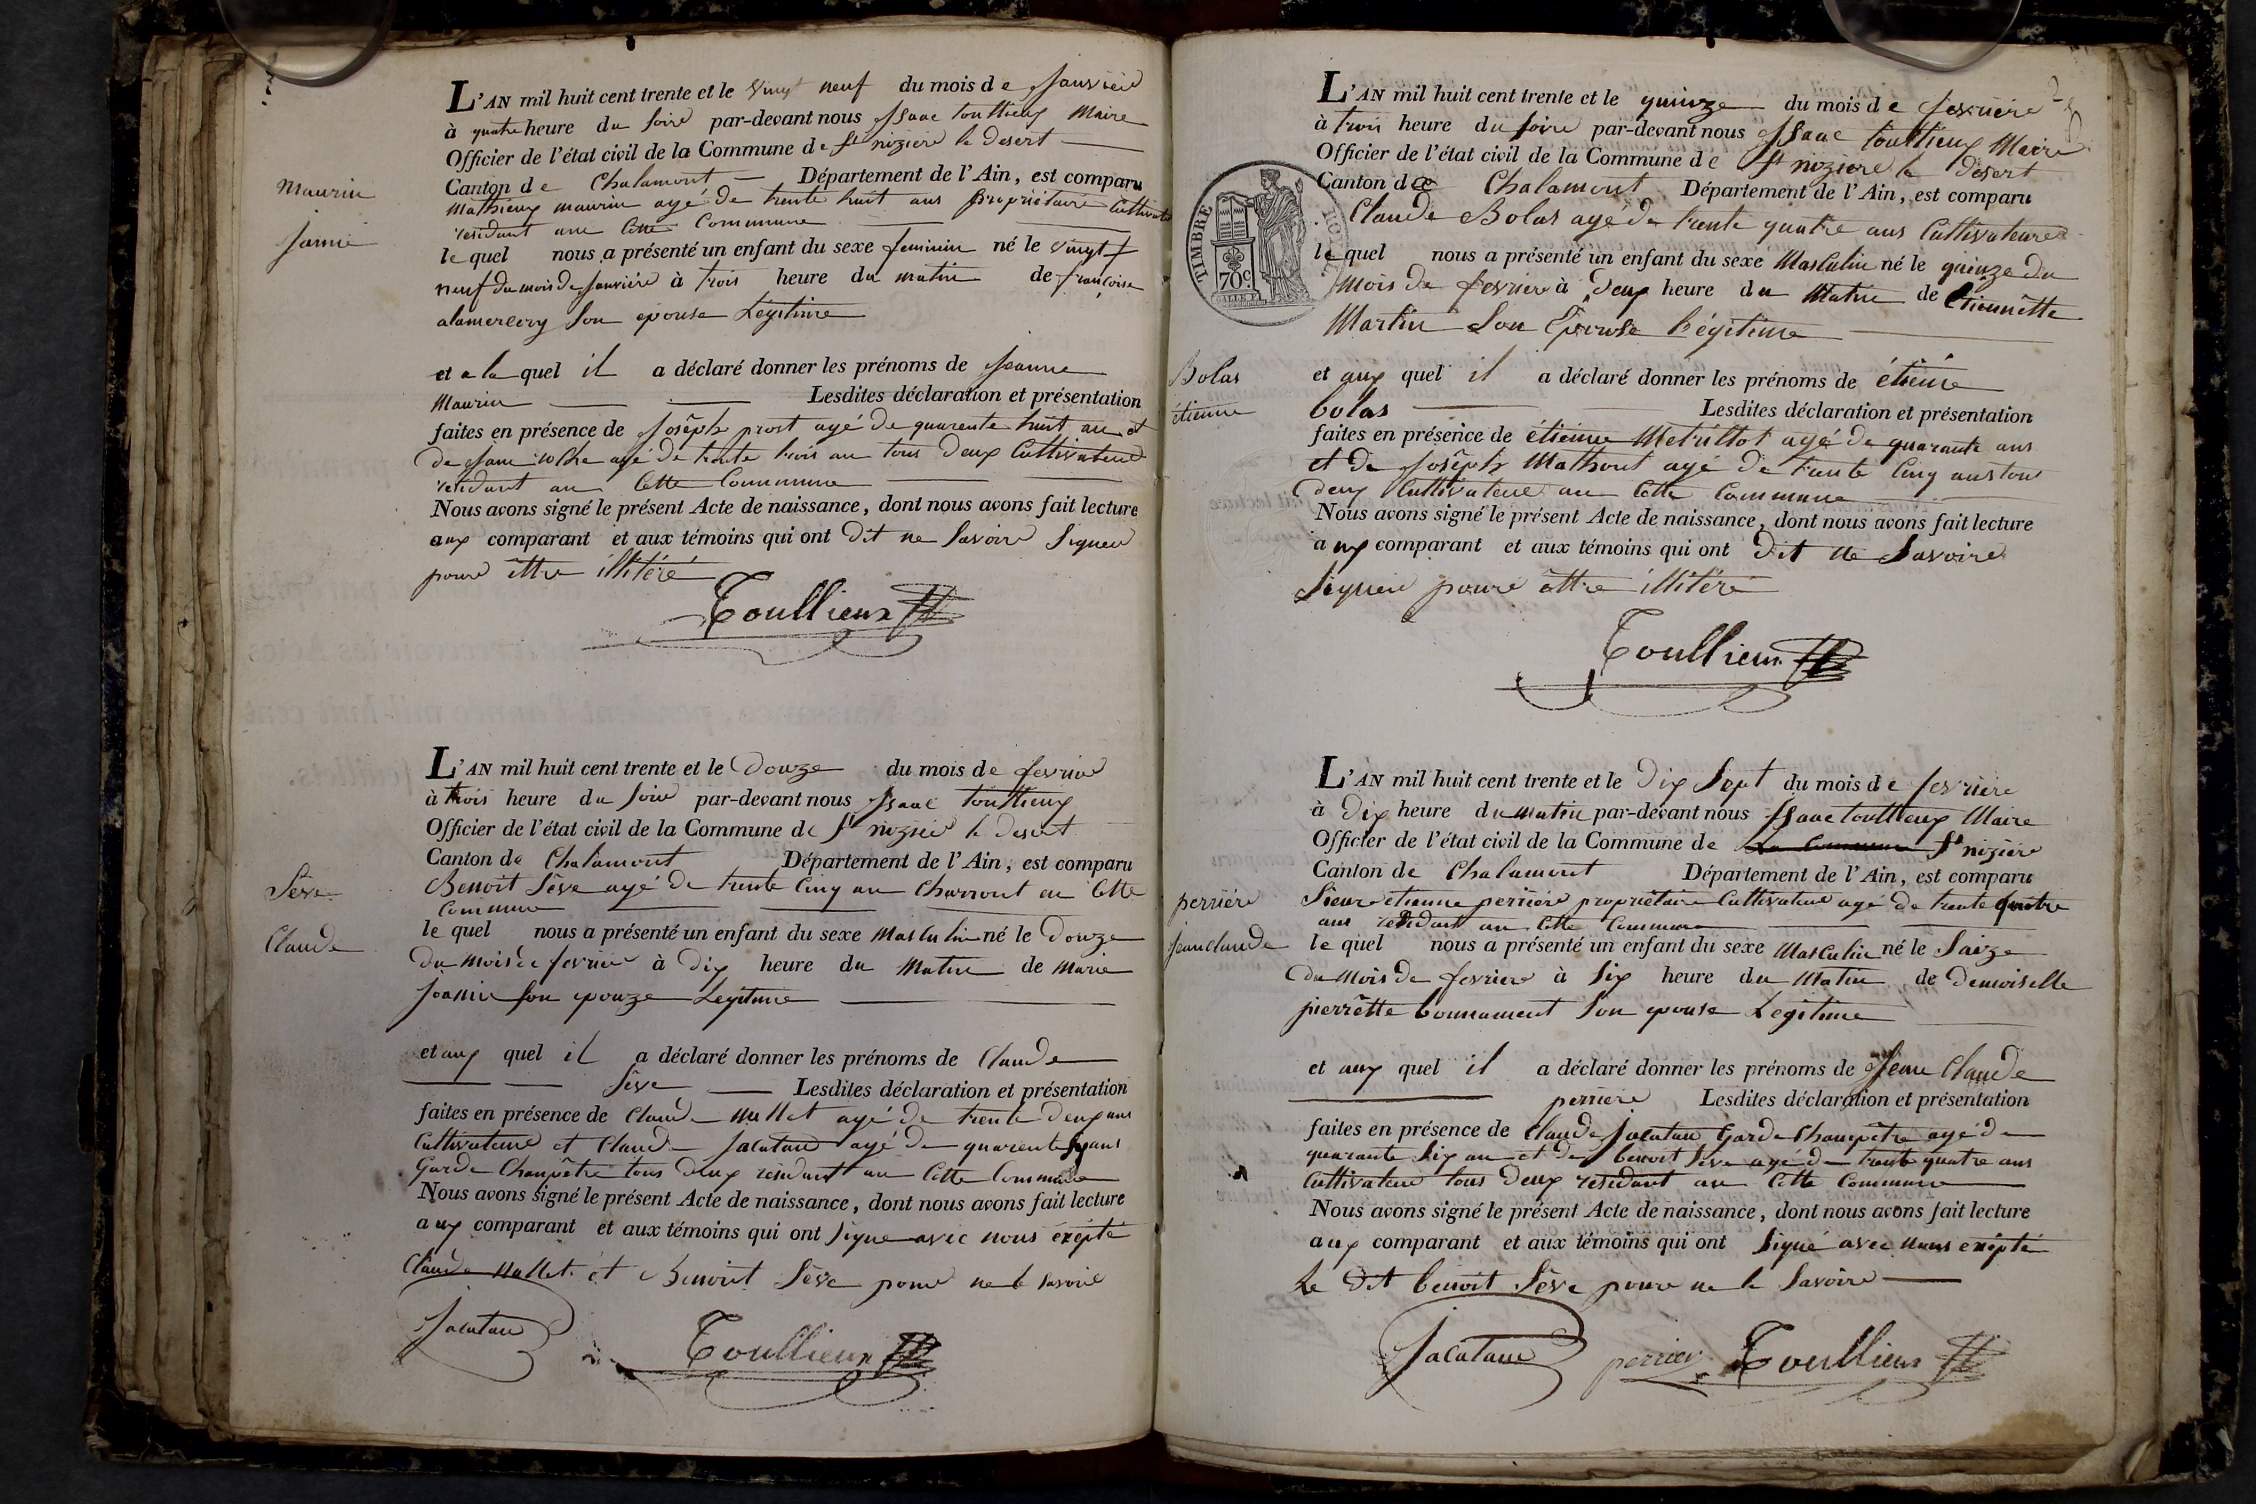 L'AN mil huit cent trente et le vingt neuf du mois de Janvier
à quatre heure du soire par-devant nous Isaac toullieux Maire
Officier de l'état civil de la Commune de St niziere le desert
Canton de Chalamont Département de l'Ain, est comparu
Mathieux maurin agé de trente huit ans propriétaire Cultivateur
residant au Cette Commune
Maurin
Janne
le quel nous a présenté un enfant du sexe feminin né le vingt
neuf du mois de Janviére à trois heure du matin de françoise
alamercery Son epouse Legitime
et a la quel il a déclaré donner les prénoms de Jeanne
Maurin Lesdites déclaration et présentation
faites en présence de Joséph prost agé de quarente huit an et
de agé de trente trois an tous deux Cultivateure
residant au Cette Commune
Nous avons signé le présent Acte de naissance, dont nous avons fait lecture
aux comparant et aux témoins qui ont dit ne Savoire Signer
poure êttre illitéré
Toullieux
L'AN mil huit cent trente et le Douze du mois de fevrier
à trois heure du soire par-devant nous Isaac toullieux
Officier de l'état civil de la Commune de St niziere le desert
Canton de Chalamont Département de l'Ain, est comparu
Benoit Séve agé de trente Cinq an Charront en Cette
Commune
Séve
Claude
le quel nous a présenté un enfant du sexe Masculin né le Douze
du mois de fevrier à Dix heure du Matin de Marie
Joannin Son epouze Legitime
et aux quel il a déclaré donner les prénoms de Claude
Séve Lesdites déclaration et présentation
faites en présence de Claude Mallet agé de trente deux ans
Cultivateure et Claude Jacutau agé de quarente Six ans
Garde Champêtre tous deux residant au Cette Commune
Nous avons signé le présent Acte de naissance, dont nous avons fait lecture
aux comparant et aux témoins qui ont Signe avec nous éxépté
Claude Mallet et Benoit Séve poure ne le savoire
Toullieux
L'AN mil huit cent trente et le quinze du mois de fevriere
à trois heure du soire par-devant nous Isaac toullieux Maire
Officier de l'état civil de la Commune de St niziere le désert
Canton de Chalamont Département de l'Ain, est comparu
Claude Bolas agé de trente quatre ans Cultivateure
TIMBRE ROYAL
70c
le quel nous a présenté un enfant du sexe Masculin né le quinze du
Mois de fevrier à Deux heure du Matin de étiennétte
Martin Son Epouse Légitime
Bolas
étienne
et aux quel il a déclaré donner les prénoms de étiéne
bolas Lesdites déclaration et présentation
faites en présence de étienne Metrillot agé de quarante ans
et de Joséph Mathout agé de trente Cinq ans tous
deux Cultivateure au Cette Commune
Nous avons signé le présent Acte de naissance, dont nous avons fait lecture
aux comparant et aux témoins qui ont dit ne Savoire
Signer poure êttre illitéré
Toullieux
L'AN mil huit cent trente et le Dix Sept du mois de fevriere
à Dix heure du matin par-devant nous Isaac toullieux Maire
Officier de l'état civil de la Commune de La Commune St niziére
Canton de Chalamont Département de l'Ain, est comparu
Sieur etienne perriére propriétaire Cultivateure agé de trente quatre
ans residant au Cette Commune
perriére
Jean Claude
le quel nous a présenté un enfant du sexe Masculin né le Saize
du Mois de fevrier à Six heure du Matin de demoiselle
pierrétte bonnament Son epouse Legitime
et aux quel il a déclaré donner les prénoms de Jean Claude
perriére Lesdites déclaration et présentation
faites en présence de Claude Jacutau Garde Champêtre agé de
quarante Six an et de benoit Séve agé de trente quatre ans
Cultivateure tous Deux residant au Cette Commune
Nous avons signé le présent Acte de naissance, dont nous avons fait lecture
aux comparant et aux témoins qui ont Signé avec nous exépté
Le Dit benoit Séve poure ne le Savoire
perrier Toullieux